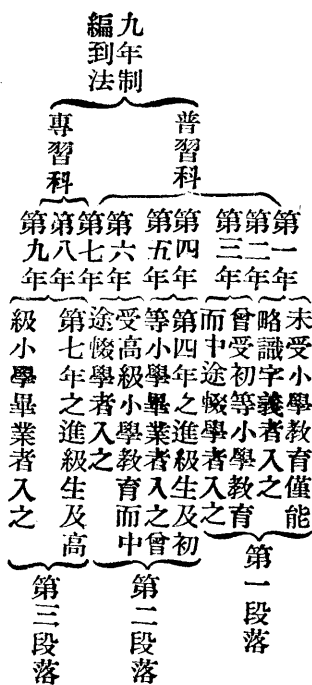 九年制
編到法
普習科
專習科
第一年
第二年
第三年
第四年
第五年
第六年
第七年
第八年
第九年
未受小學教育僅能
略識字義者入之
曾受初等小學教育
而中途惙學者入之
第四年之進級生及初
等小學畢業者入之曾
受高級小學教育而中
途惙學者入之
第七年之進級生及高
級小學畢業者入之
第一段落
第二段落
第三段落